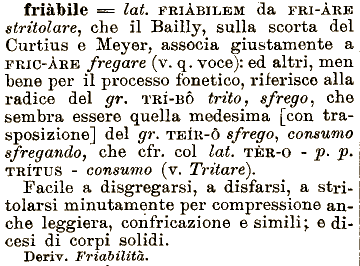 friàbile = lat. FRIÀBILEM da FRI-ÀRE
stritolare, che il Bailly, sulla scorta del
Curtius e Meyer, associa giustamente a
FRIC-ÀRE fregare (v. q. voce): ed altri, men
bene per il processo fonetico, riferisce alla
radice del gr. TRÍ-BÔ trito, sfrego, che
sembra essere quella medesima [con tra-
sposizione] del gr. TEÍR-Ô sfrego, consumo
sfregando, che cfr. col lat. TÈR-O - p. p.
TRÍTUS - consumo (v. Tritare).
Facile a disgregarsi, a disfarsi, a stri-
tolarsi minutamente per compressione an-
che leggiera, confricazione e simili; e di-
cesi di corpi solidi.
Deriv. Friabilità.